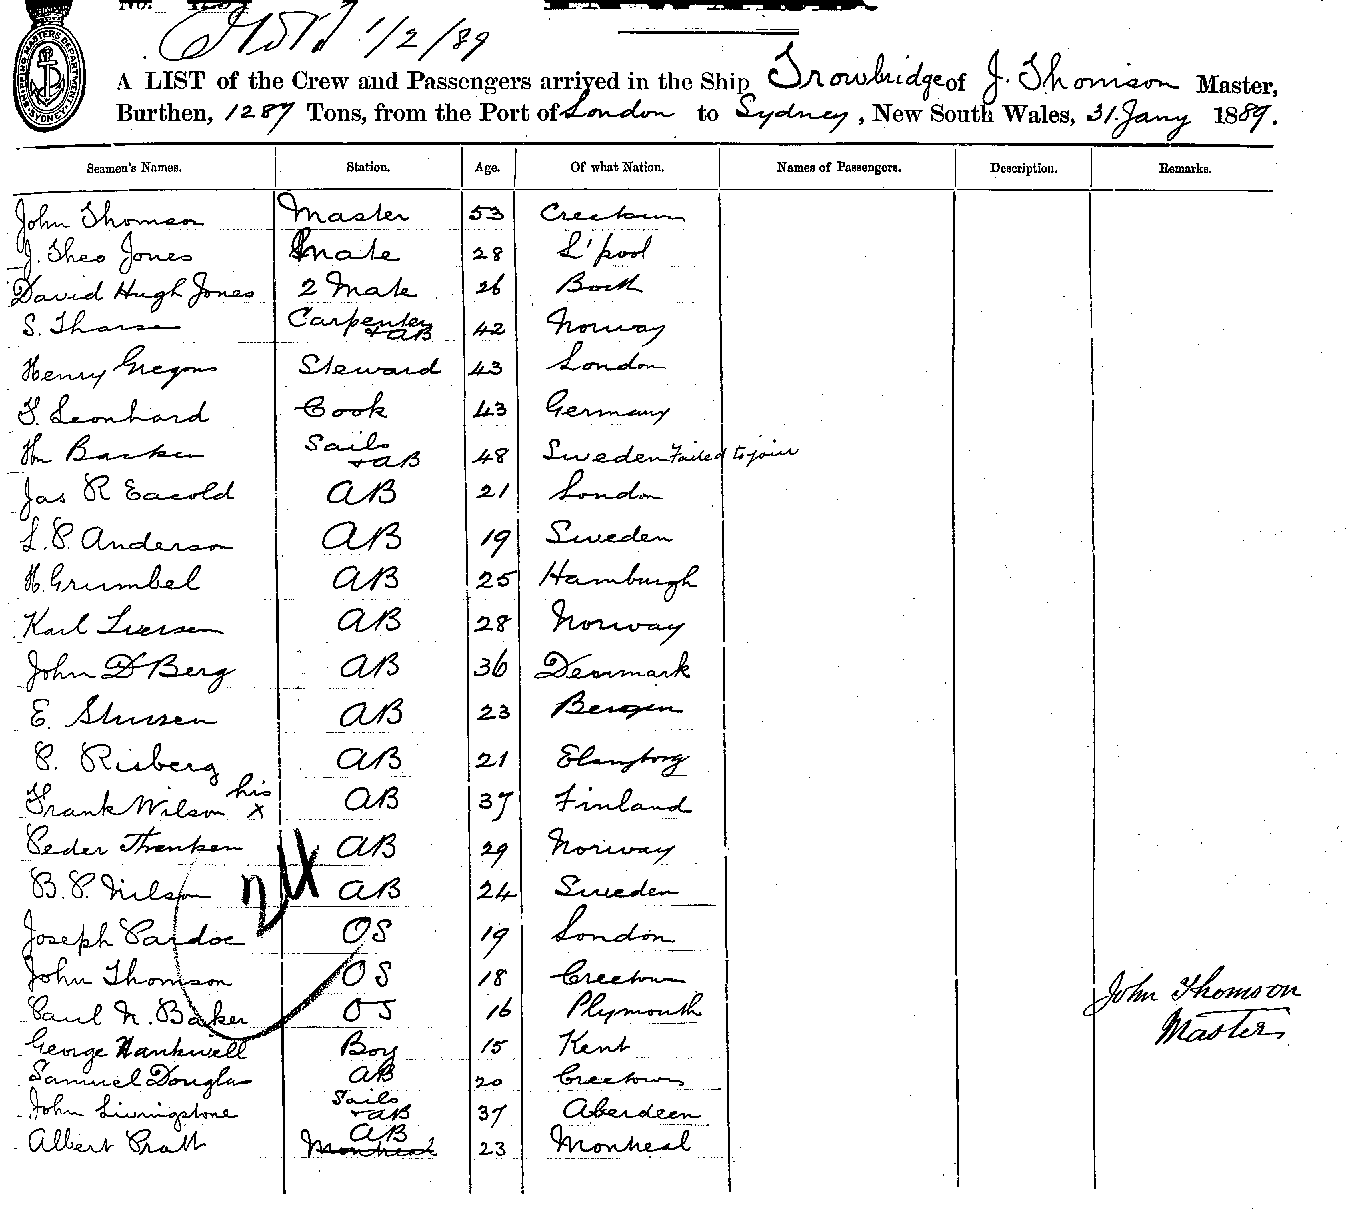 No.
1/2/89
SHIPPING MASTERS DEPARTMENT SYDNEY
A LIST of the Crew and Passengers arrived in the Ship Trowbridge of J. Thomson Master,
Burthen, 1287 Tons, from the Port of London to Sydney, New South Wales, 31 Jany 1889.
Seamen's Names. Station. Age. Of what Nation. Names of Passengers. Description. Remarks.
John Thomson Master 53 Creetown
J. Theo Jones Mate 28 L'pool
David Hugh Jones 2 Mate 26
S. Carpenter + AB 42 Norway
Henry Steward 43 London
Leonhard Cook 43 Germany
Sails + AB 48 Sweden Failed to join
Jas R Eacold AB 21 London
L. P. Anderson AB 19 Sweden
H. Grumbel AB 25 Hamburgh
Karl AB 28 Norway
John D Berg AB 36 Denmark
E. AB 23 Bergen
P. Risberg AB 21
Frank Wilson his x AB 37 Finland
Peder AB 29 Norway
B. P. Nilson AB 24 Sweden
24
Joseph Pardoe OS 19 London
John Thomson OS 18 Creetown
Paul N. Baker OS 16 Plymouth
George Boy 15 Kent
Samuel Douglas AB 20 Creetown
John Livingstone Sails + AB 37 Aberdeen
Albert Pratt AB Montreal 23 Montreal
John Thomson
Master